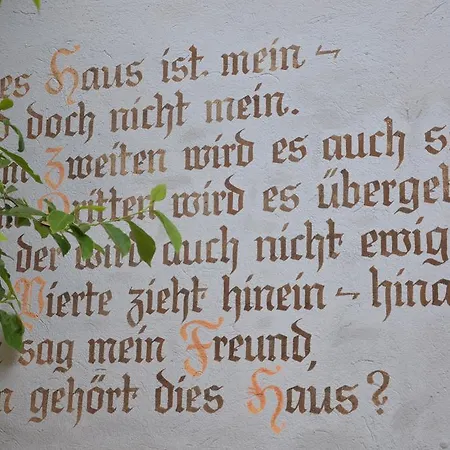 es Haus ist mein -
doch nicht mein.
Zweiten wird es auch s
Dritten wird es übergeb
der wird auch nicht ewig
Vierte zieht hinein - hina
sag mein Freund,
gehört dies Haus?